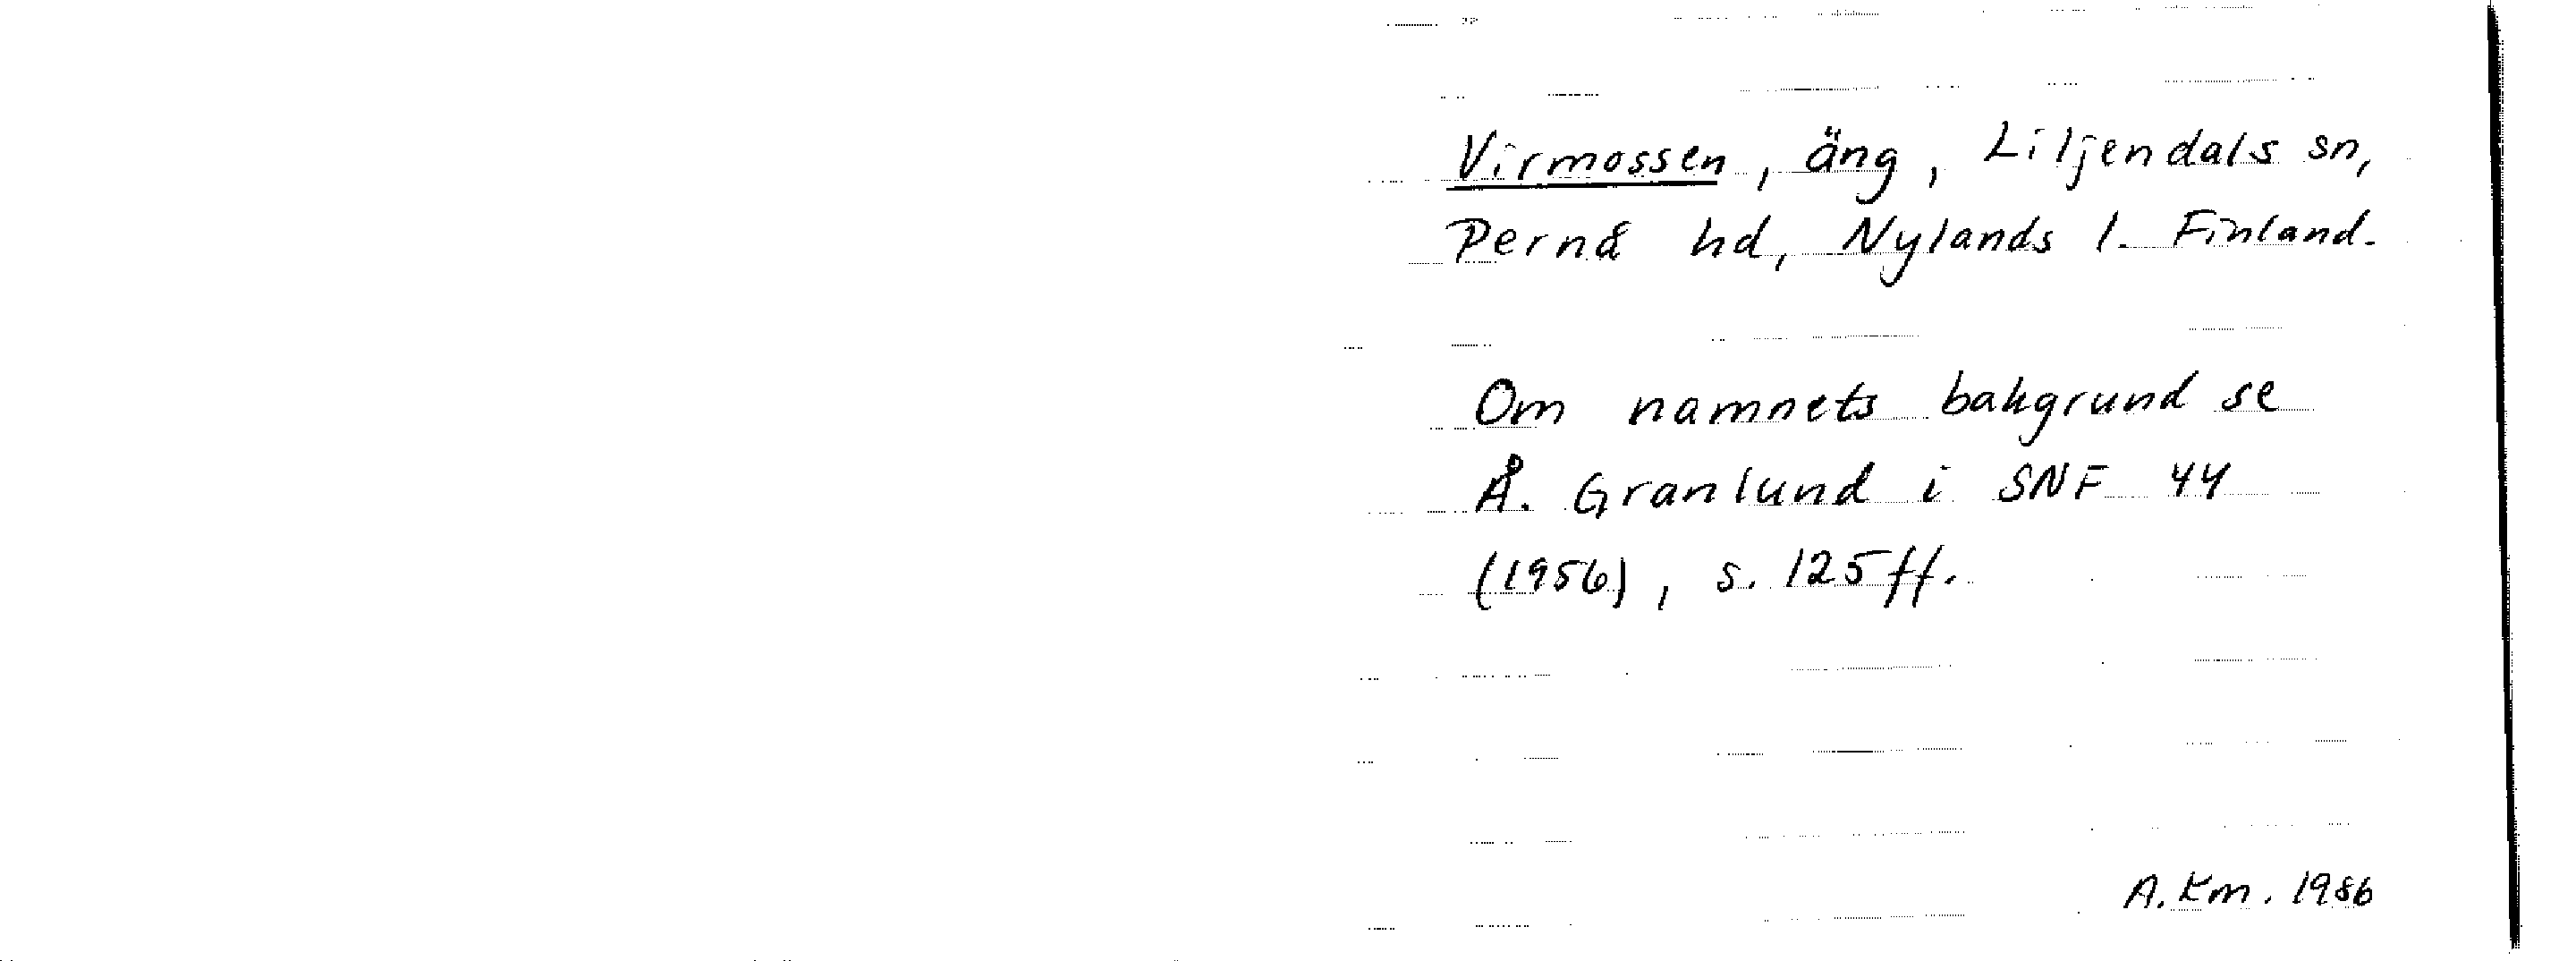 Virmossen, äng, Liljendals sn,
Pernå hd, Nylands l. Finland.
Om namnets bakgrund se
Å. Granlund i SNF 44
(1956), s. 125 ff.
A. Km. 1986